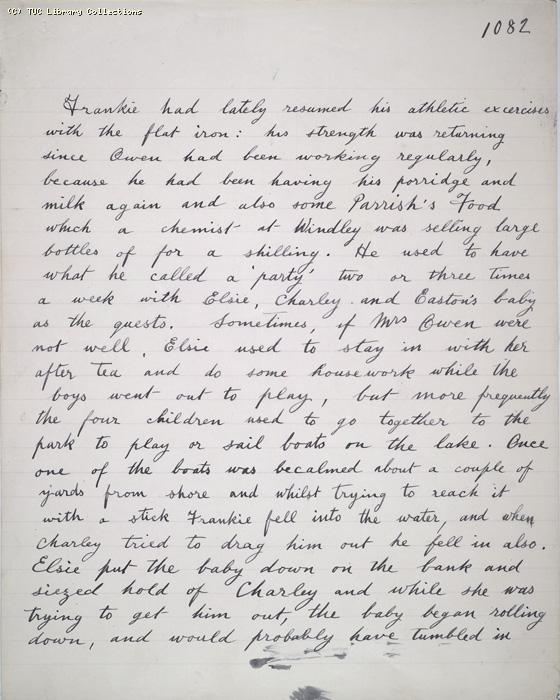 (C) TUC Library Collections
1082
Frankie had lately resumed his athletic excercises
with the flat iron: his strength was returning
since Owen had been working regularly,
because he had been having his porridge and
milk again and also some Parrish's Food
which a chemist at Windley was selling large
bottles of for a shilling. He used to have
what he called a 'party' two or three times
a week with Elsie, Charley and Easton's baby
as the guests. Sometimes, if Mrs Owen were
not well, Elsie used to stay in with her
after tea and do some housework while the
boys went out to play, but more frequently
the four children used to go together to the
park to play or sail boats on the lake. Once
one of the boats was becalmed about a couple of
yards from shore and whilst trying to reach it
with a stick Frankie fell into the water, and when
Charley tried to drag him out he fell in also.
Elsie put the baby down on the bank and
siezed hold of Charley and while she was
trying to get him out, the baby began rolling
down, and would probably have tumbled in